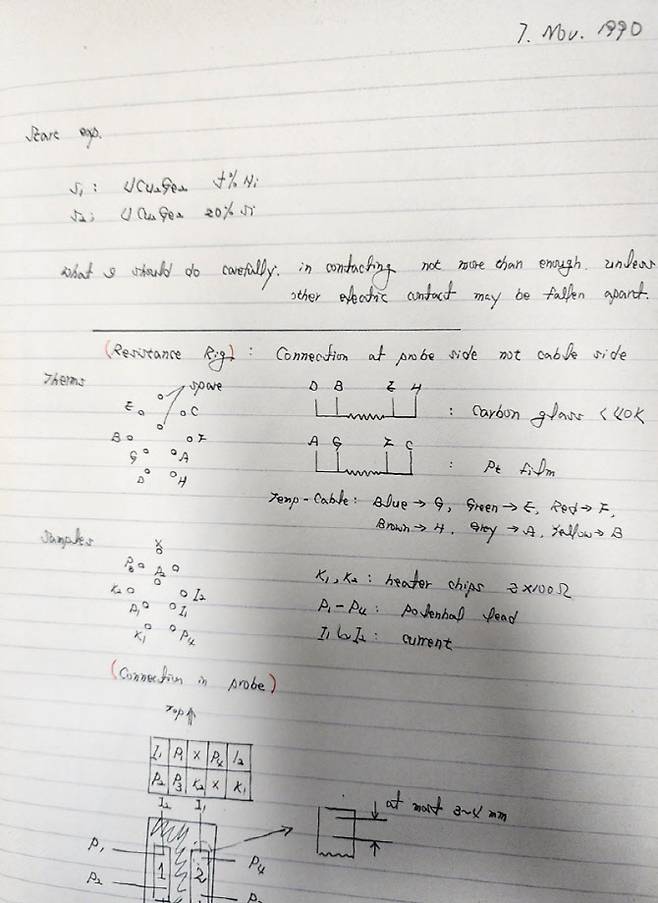 7. Nov. 1990
Start exp.
S1 : UCu2Ge2 % Ni
S2 ; UCu2Ge2 20% Si
What I should do carefully. in contacting not more than enough. unless
other electric contact may be fallen apart.
(Resistance Rig) : Connection at probe side not cable side
Therms
spare
E C
B F
G A
D H
D B E H
: Carbon glass < 40K
A G F C
: Pt film
Temp-Cable : Blue → G, Green → E, Red → F,
Brown → H, Grey → A, Yellow → B
Samples
X
P3 P2
K2 I2
P1 I1
K1 P4
K1, K2 : heater chips 2×100Ω
P1 – P4 : potential lead
I1 I2 : current
(Connection in probe)
Top↑
I1 P1 X P4 I2
P2 P3 K2 X K1
I2 I1
at most 3~4 mm
P1 1 2 P4
P2